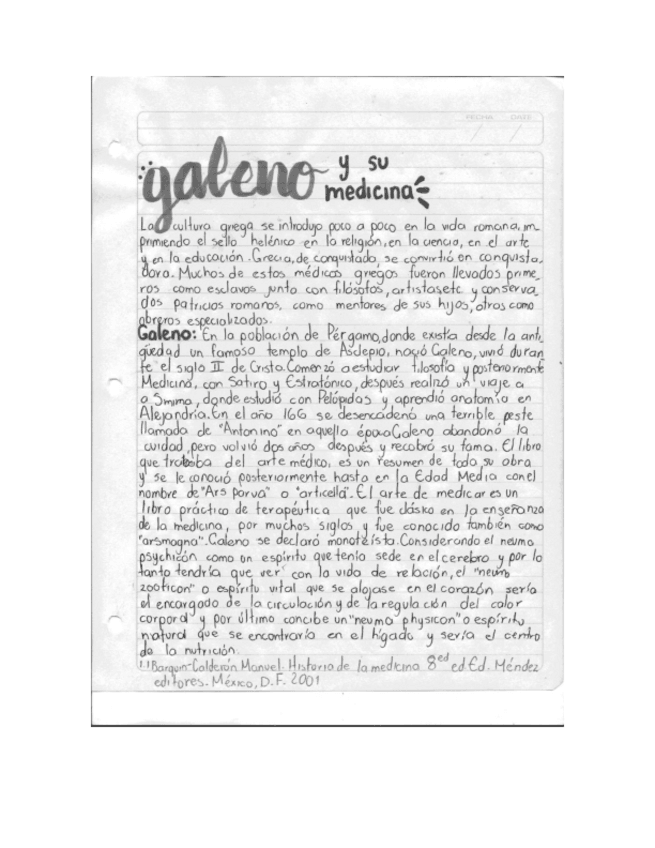 FECHA DATE
galeno y su
medicina
La cultura griega se introdujo poco a poco en la vida romana, im
primiendo el sello helénico en la religión, en la ciencia, en el arte
y en la educación. Grecia, de conquistada, se convirtió en conquista.
dora. Muchos de estos médicos griegos fueron llevados prime
ros como esclavos junto con filósofos, artistas etc y conserva.
dos patricios romanos, como mentores de sus hijos, otros como
obreros especializados.
Galeno: En la población de Pérgamo, donde existía desde la anti
güedad un famoso templo de Asclepio, nació Galeno, vivió duran
te el siglo II de Cristo. Comenzó a estudiar filosofía y posteriormente
Medicina, con Satiro y Estratónico, después realizó un viaje a
a Smirna, donde estudió con Pelópidas y aprendió anatomía en
Alejandría. En el año 166 se desencadenó una terrible peste
llamada de "Antonino" en aquello época Galeno abandonó la
cuidad, pero volvió dos años después y recobró su fama. El libro
que trataba del arte médico, es un resumen de toda su obra
y se le conoció posteriormente hasta en la Edad Media con el
nombre de "Ars parva" o "articella". El arte de medicar es un
libro práctico de terapéutica que fue clásico en la enseñanza
de la medicina, por muchos siglos y fue conocido también como
"arsmagna". Galeno se declaró monoteísta. Considerando el neuma
psychicón como un espíritu que tenía sede en el cerebro y por lo
tanto tendría que ver con la vida de relación, el "neuma
zooticon" o espíritu vital que se alojase en el corazón sería
el encargado de la circulación y de la regulación del calor
corporal y por último concibe un "neuma physicon" o espíritu
natural que se encontraría en el hígado y sería el centro
de la nutrición.
Barquin-Calderón Manuel. Historia de la medicina 8ed ed Ed. Méndez
editores. México, D.F. 2001